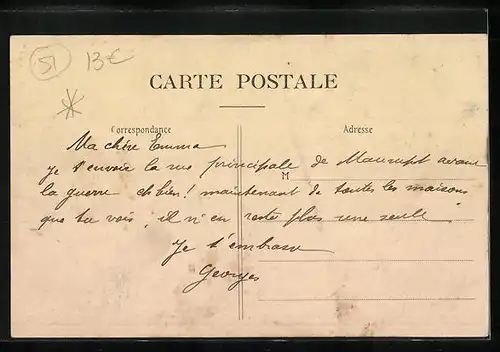 51
13€
CARTE POSTALE
Correspondance
Adresse
Ma chère Emma
je t'envoie la rue principale de Maurupt avant
la guerre eh bien! maintenant de toutes les maisons
M
que tu vois, il n'en reste plus une seule
Je t'embrasse
Georges